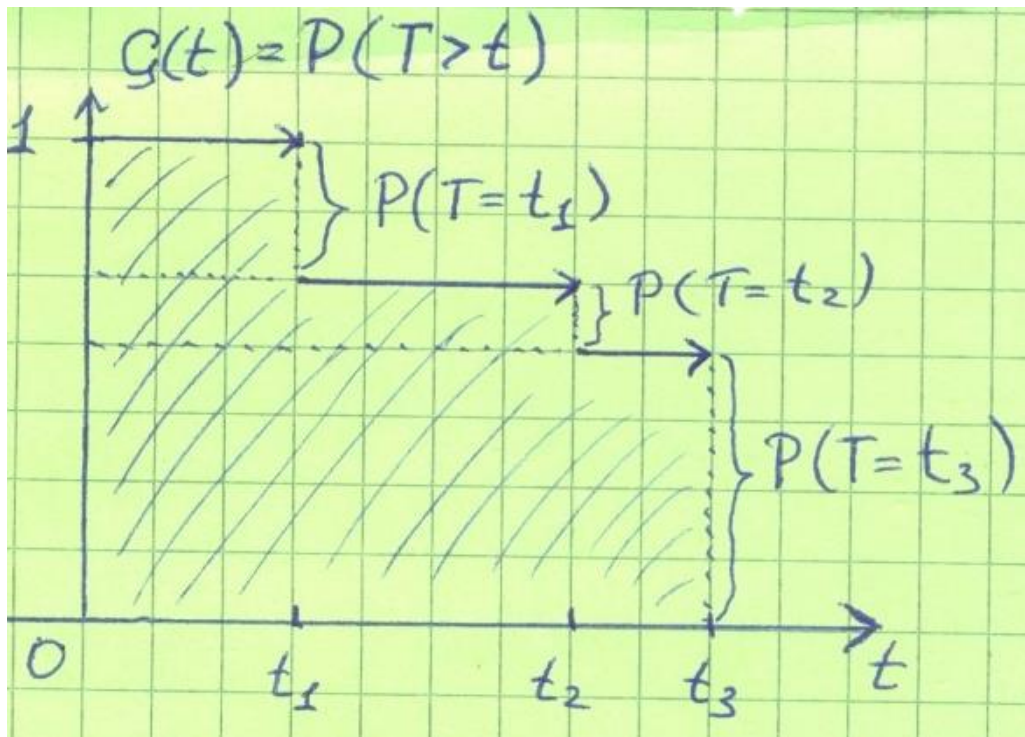 G(t)=P(T>t)
1
P(T=t₁)
P(T=t₂)
P(T=t₃)
0
t₁
t₂
t₃
t